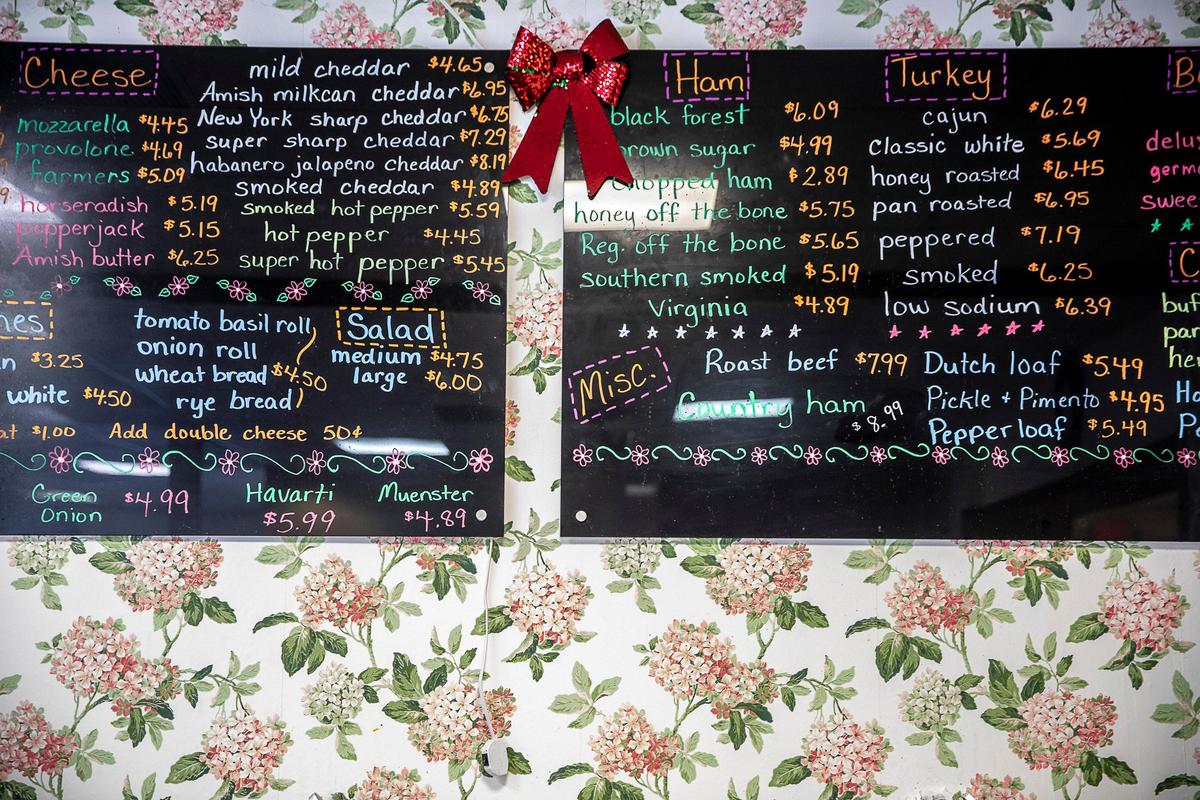 Cheese
mozzarella $4.45
provolone $4.69
farmers $5.09
horseradish $5.19
pepperjack $5.15
Amish butter $6.25
mild cheddar $4.65
Amish milkcan cheddar $6.95
New York sharp cheddar $6.75
super sharp cheddar $7.29
habanero jalapeno cheddar $8.19
smoked cheddar $4.89
smoked hot pepper $5.59
hot pepper $4.45
super hot pepper $5.45
$3.25
white $4.50
$1.00 Add double cheese 50¢
tomato basil roll
onion roll
wheat bread $4.50
rye bread
Salad
medium $4.75
large $6.00
Green Onion $4.99
Havarti $5.99
Muenster $4.89
Ham
black forest $6.09
brown sugar $4.99
chopped ham $2.89
honey off the bone $5.75
Reg. off the bone $5.65
southern smoked $5.19
Virginia $4.89
Turkey
cajun $6.29
classic white $5.69
honey roasted $6.45
pan roasted $6.95
peppered $7.19
smoked $6.25
low sodium $6.39
Misc.
Roast beef $7.99
Country ham $8.99
Dutch loaf $5.49
Pickle + Pimento $4.95
Pepper loaf $5.49